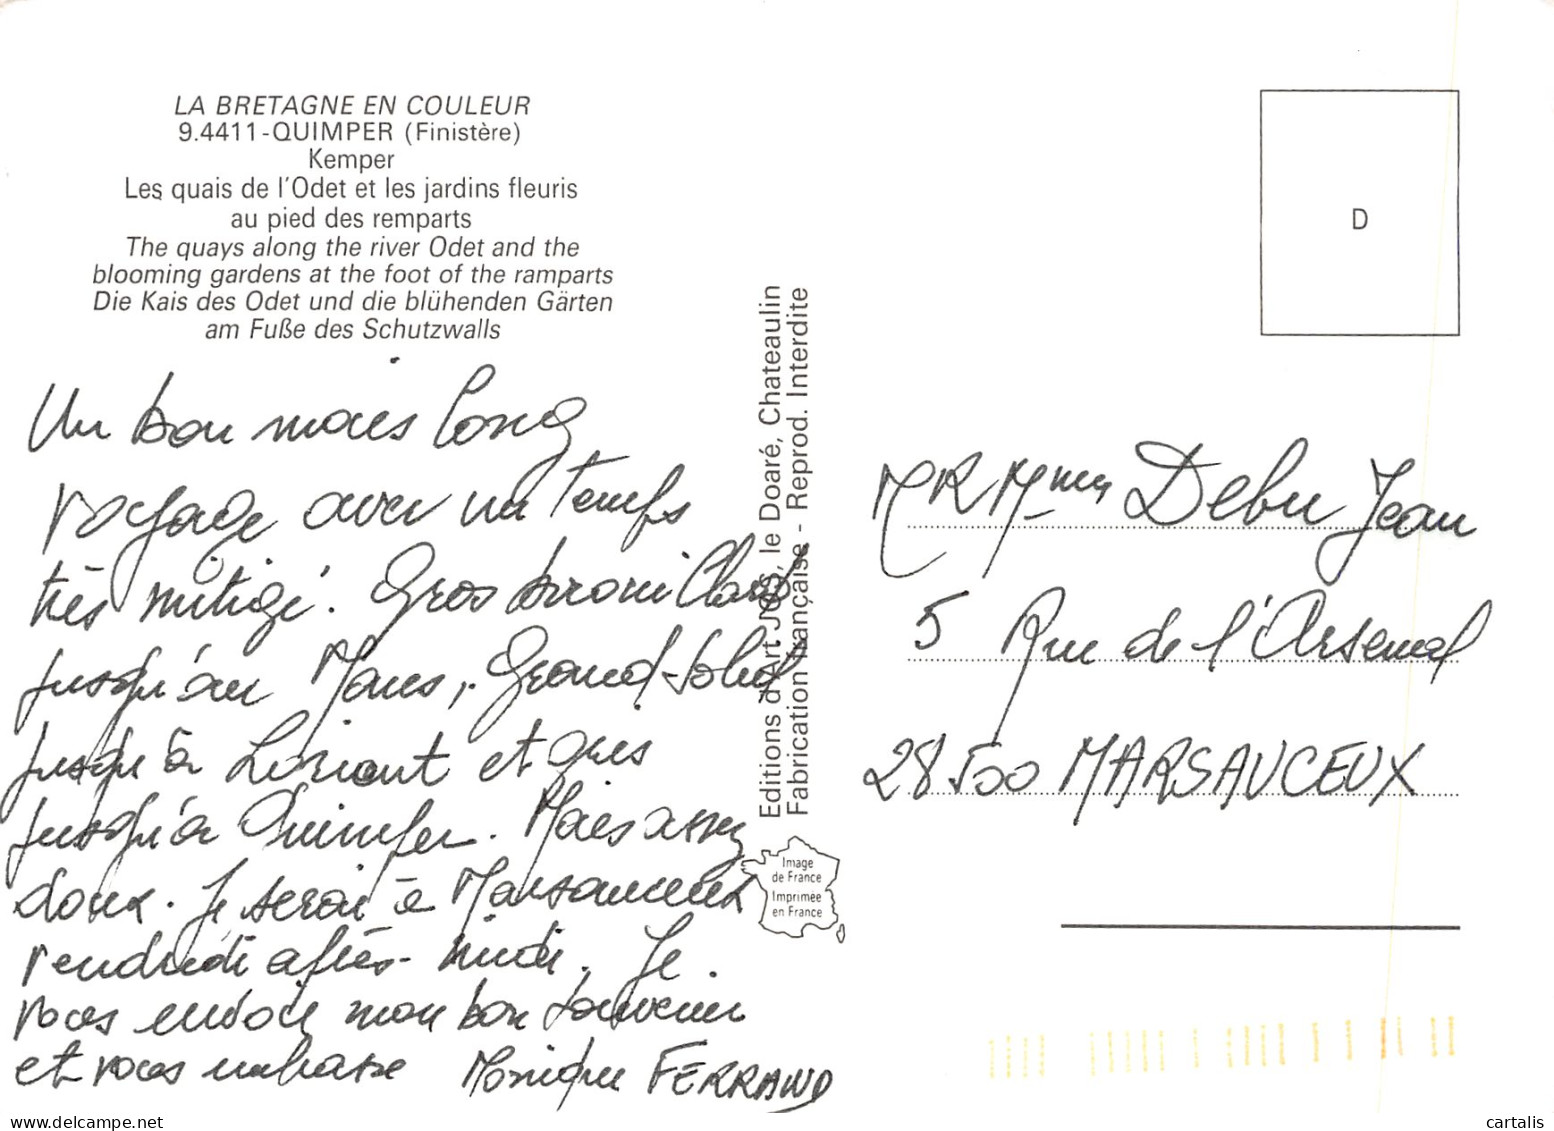 LA BRETAGNE EN COULEUR
9.4411-QUIMPER (Finistère)
Kemper
Les quais de l'Odet et les jardins fleuris
au pied des remparts
The quays along the river Odet and the
blooming gardens at the foot of the ramparts
Die Kais des Odet und die blühenden Gärten
am Fuße des Schutzwalls
Un bon mais long
voyage avec un temps
très mitigé. Gros brouillard
jusqu'au Mans, Grand soleil
jusqu'à Lorient et gris
jusqu'à Quimper. Mais assez
doux. Je serai à Marsauceux
vendredi après-midi. Je
vous envoie mon bon souvenir
et vous embrasse Monique FERRAND
Editions d'Art JOS, le Doaré, Chateaulin
Fabrication française - Reprod. Interdite
Image
de France
Imprimée
en France
D
MR Mme Debu Jean
5 Rue de l'Arsenal
28500 MARSAUCEUX
delcampe.net
cartalis